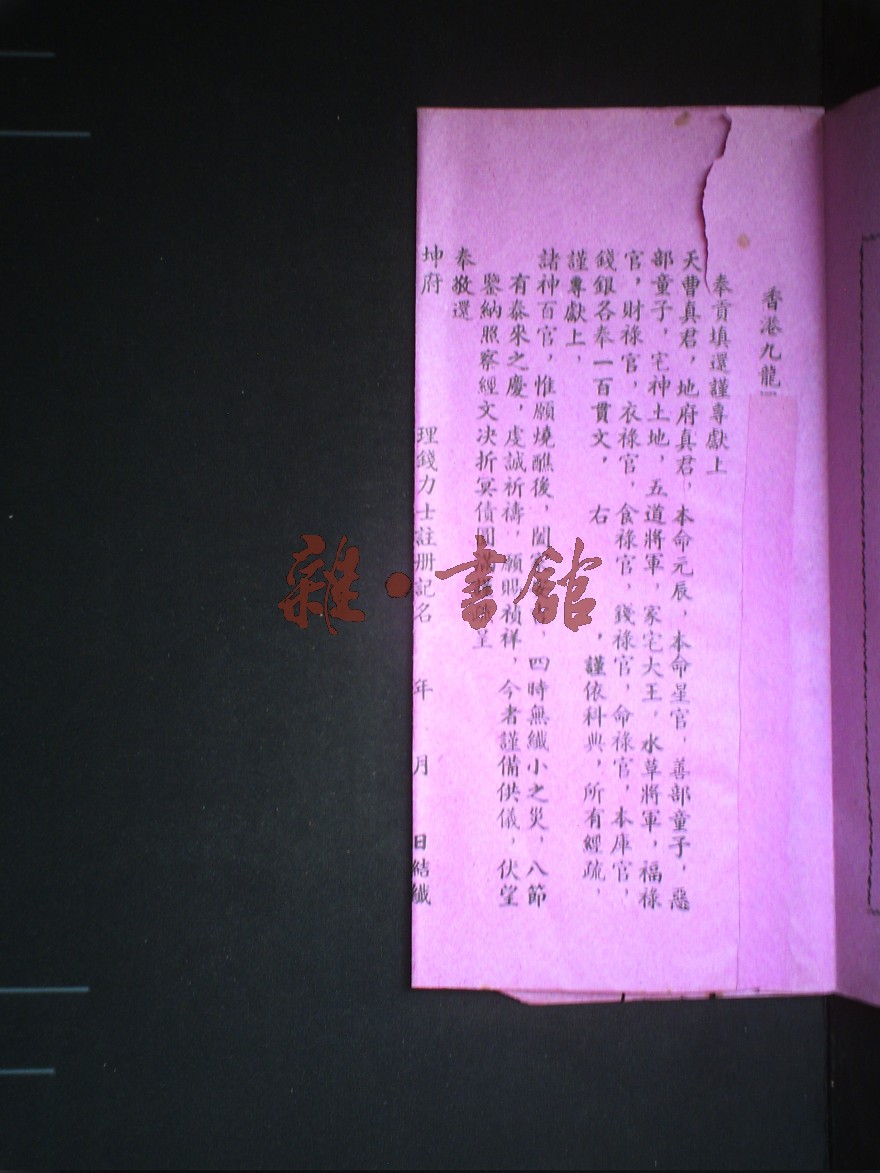 香港九龍
奉貢填還謹專獻上
天曹真君，地府真君，本命元辰，本命星官，善部童子，惡
部童子，宅神土地，五道將軍，家宅大王，水草將軍，福祿
官，財祿官，衣祿官，食祿官，錢祿官，命祿官，本庫官，
錢銀各奉一百貫文，右，謹依科典，所有經疏，
謹專獻上，
諸神百官，惟願燒醮後，闔家，四時無纖小之災，八節
有泰來之慶，虔誠祈禱，願賜禎祥，今者謹備供儀，伏望
鑒納照察經文決折冥債圓滿呈
奉敬還
坤府 理錢力士註册記名 年 月 日結纖
雜·書館